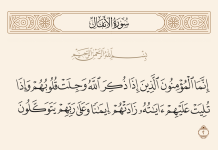 سُورَةُ الأَنفَالِ
بِسْمِ اللَّهِ الرَّحْمَٰنِ الرَّحِيمِ
إِنَّمَا ٱلْمُؤْمِنُونَ ٱلَّذِينَ إِذَا ذُكِرَ ٱللَّهُ وَجِلَتْ قُلُوبُهُمْ وَإِذَا
تُلِيَتْ عَلَيْهِمْ ءَايَٰتُهُۥ زَادَتْهُمْ إِيمَٰنًا وَعَلَىٰ رَبِّهِمْ يَتَوَكَّلُونَ
٢